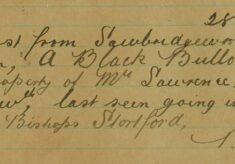 28
st from Sawbridgewor
A Black Bullo
operty of Mr Lawrence,
wth, last seen going in
Bishops Stortford,